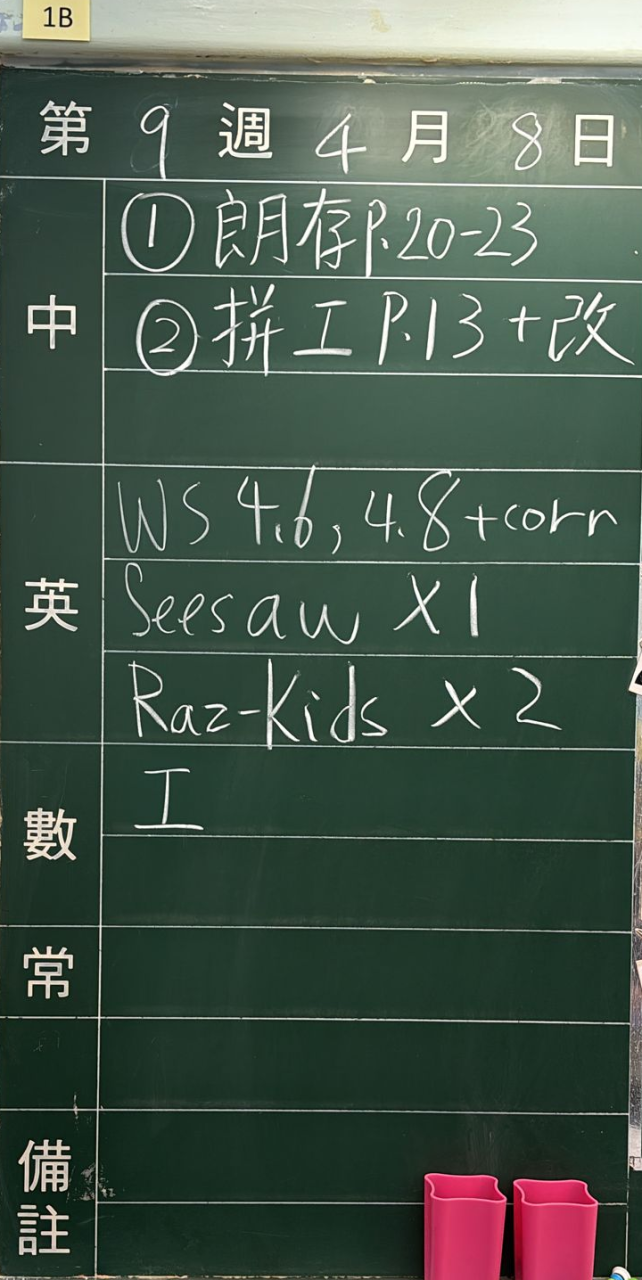 1B
第 9 週 4 月 8 日
中
① 朗存P.20-23
② 拼工 P.13 + 改
英
WS 4.6, 4.8 + corr
Seesaw X1
Raz-Kids X 2
數
工
常
備註